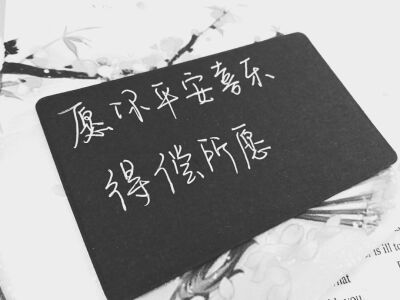 愿你平安喜乐
得偿所愿
is ill to
hat
you